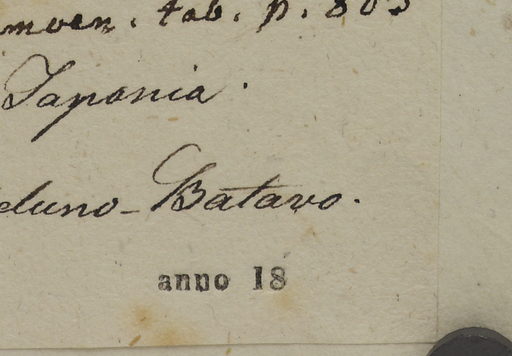 amoen. tab. p. 803
Japonia.
duno-Batavo.
anno 18